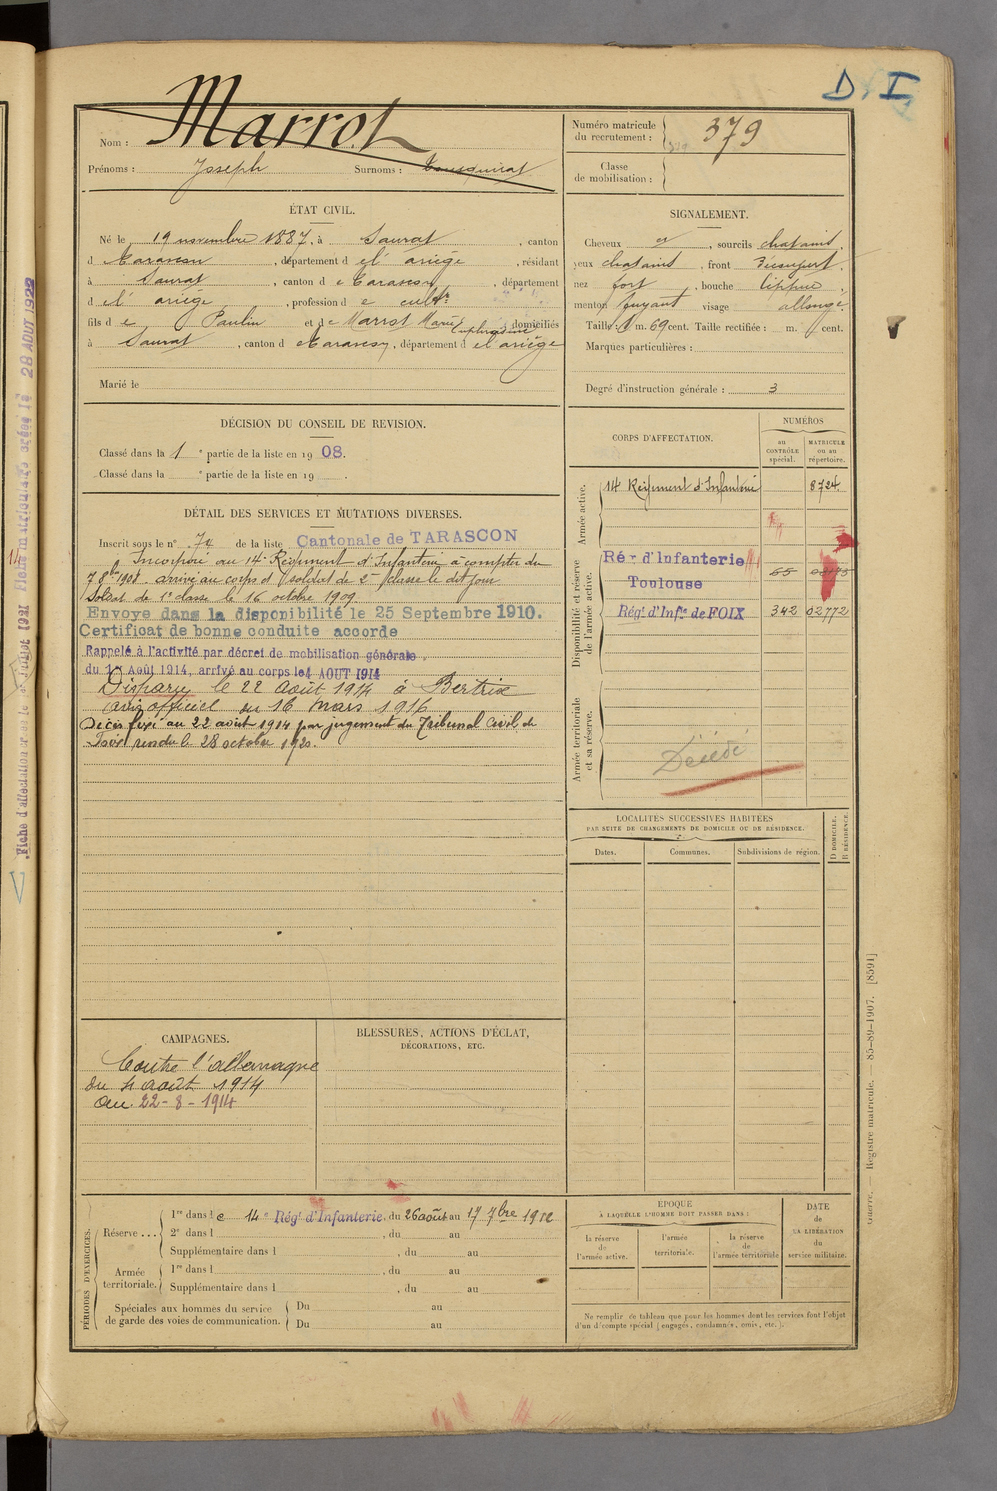 D I
Nom : Marrot
Prénoms : Joseph Surnoms :
Numéro matricule
du recrutement : 379
Classe
de mobilisation :
ÉTAT CIVIL.
Né le 19 novembre 1887, à Saurat, canton
d Tarascon, département d el' ariège, résidant
à Saurat, canton d e Tarascon, département
d el' ariège, profession d e cultr
fils d e Paulin et d e Marrot Marie Euphrosine domiciliés
à Saurat, canton d e Tarascon, département d el' ariège
Marié le
SIGNALEMENT.
Cheveux et, sourcils chatains,
yeux chatains, front découvert,
nez fort, bouche lippue,
menton fuyant visage allongé.
Taille : 1 m. 69 cent. Taille rectifiée : m. cent.
Marques particulières :
Degré d'instruction générale : 3
DÉCISION DU CONSEIL DE REVISION.
Classé dans la 1 e partie de la liste en 19 08.
Classé dans la e partie de la liste en 19 .
DÉTAIL DES SERVICES ET MUTATIONS DIVERSES.
Inscrit sous le n° 74 de la liste Cantonale de TARASCON
Incorporé au 14e Régiment d'Infanterie à compter du
7 8bre 1908. arrivé au corps et soldat de 2e classe le dit jour
Soldat de 1e classe le 16 octobre 1909
Envoye dans la disponibilité le 25 Septembre 1910.
Certificat de bonne conduite accorde
Rappelé à l'activité par décret de mobilisation générale
du 1er Août 1914, arrivé au corps le 4 AOUT 1914
Disparu le 22 août 1914 à Bertrix
avis officiel du 16 mars 1916
Décès fixé au 22 août 1914 par jugement du Tribunal Civil de
Foix rendu le 28 octobre 1920.
CORPS D'AFFECTATION.
NUMÉROS
au
CONTRÔLE
spécial.
MATRICULE
ou au
répertoire.
Armée active.
14 Régiment d'Infanterie 8724
Disponibilité et réserve
de l'armée active.
Rég d'Infanterie
Toulouse 65
Régt d'Infie de FOIX 342 02772
Armée territoriale
et sa réserve.
Décédé
LOCALITÉS SUCCESSIVES HABITÉES
PAR SUITE DE CHANGEMENTS DE DOMICILE OU DE RÉSIDENCE.
Dates. Communes. Subdivisions de région.
D DOMICILE.
R RÉSIDENCE.
CAMPAGNES.
Contre l'allemagne
du 4 août 1914
au 22-8-1914
BLESSURES, ACTIONS D'ÉCLAT,
DÉCORATIONS, ETC.
PÉRIODES D'EXERCICES.
Réserve ...
1re dans l e 14e Régt d'Infanterie, du 26 août au 17 7bre 1912
2e dans l , du au
Supplémentaire dans l , du au
Armée
territoriale.
1re dans l , du au
Supplémentaire dans l , du au
Spéciales aux hommes du service
de garde des voies de communication.
Du au
Du au
ÉPOQUE
À LAQUELLE L'HOMME DOIT PASSER DANS :
la réserve
de
l'armée active.
l'armée
territoriale.
la réserve
de
l'armée territoriale
DATE
de
LA LIBÉRATION
du
service militaire.
Ne remplir ce tableau que pour les hommes dont les services font l'objet
d'un décompte spécial (engagés, condamnés, omis, etc.).
Guerre. — Registre matricule. — 85-89-1907. [8591]
28 AOUT 1922